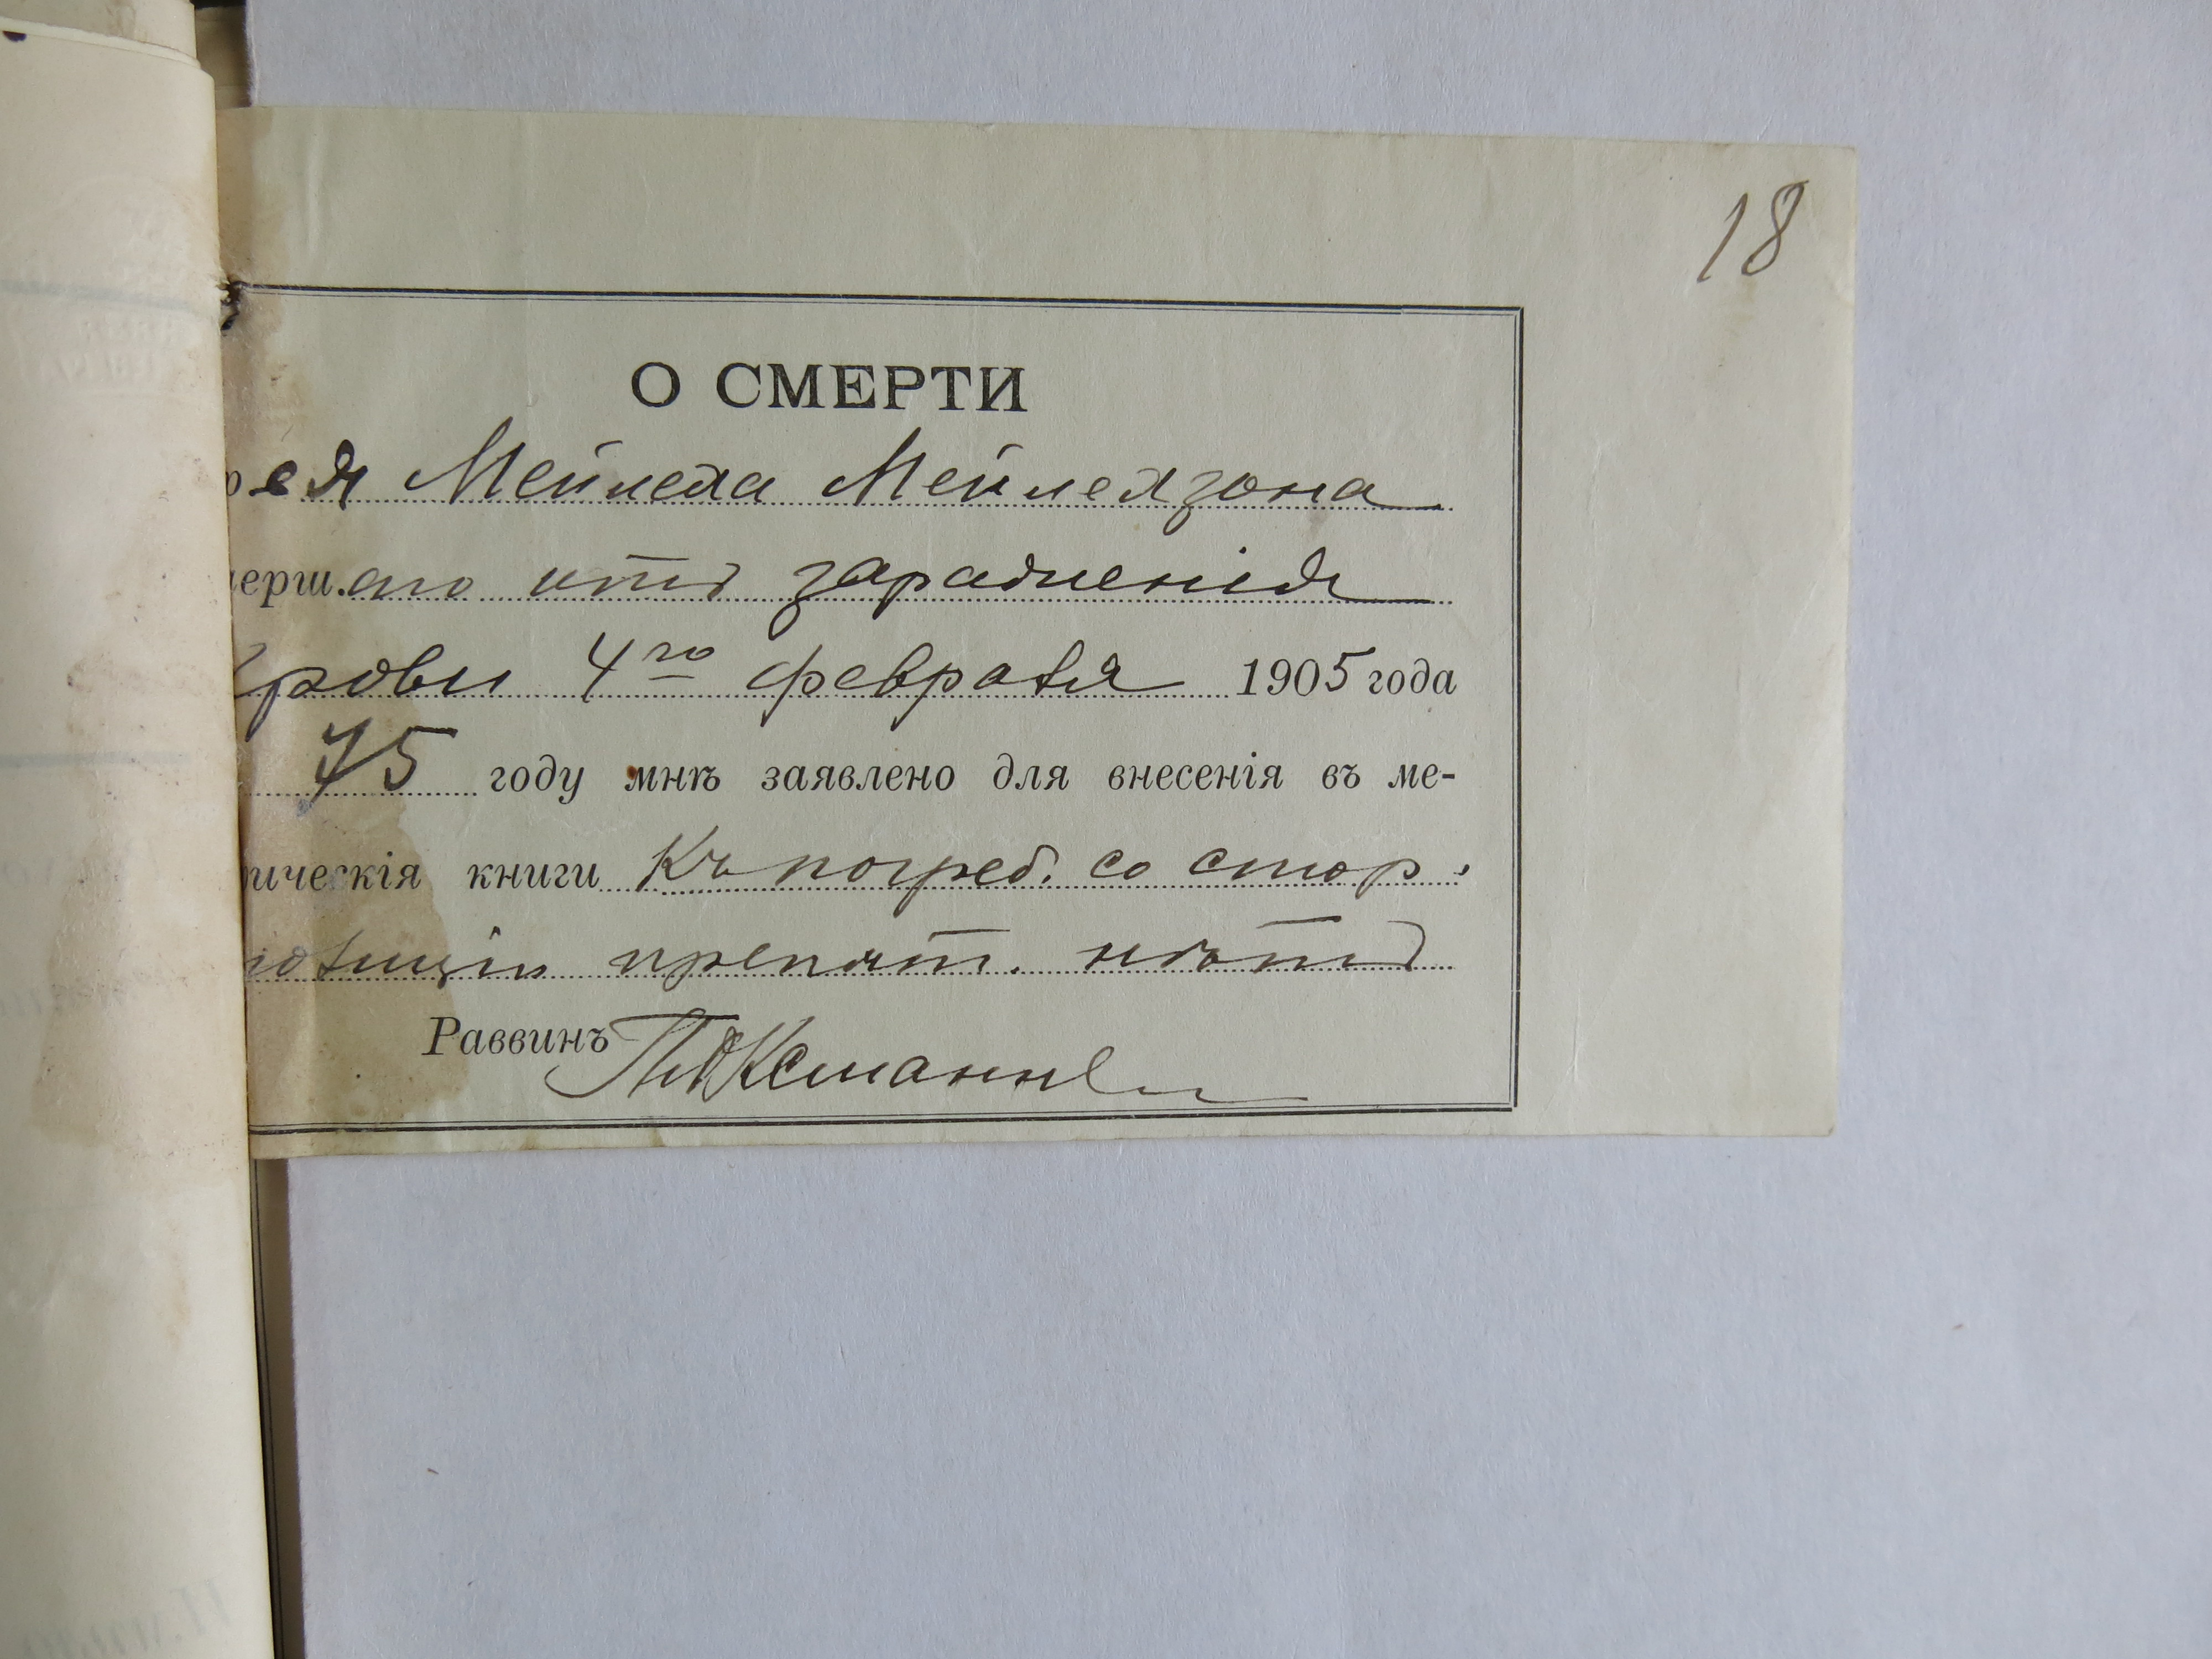 18
О СМЕРТИ
рея Мейлеха Мейлехзона
мерш.аго отъ зараженія
крови 4го февраля 1905 года
75 году мнѣ заявлено для внесенія въ ме-
рическія книги Къ погреб. со стор.
полиціи препят. нѣтъ
Раввинъ